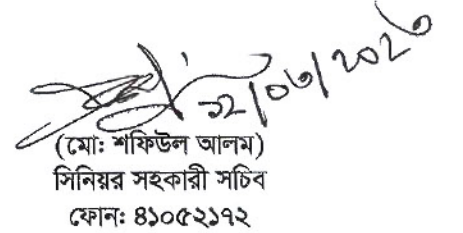 ১২/০৩/২০২৩
(মো: শফিউল আলম)
সিনিয়র সহকারী সচিব
ফোন: ৪১০৫২১৭২